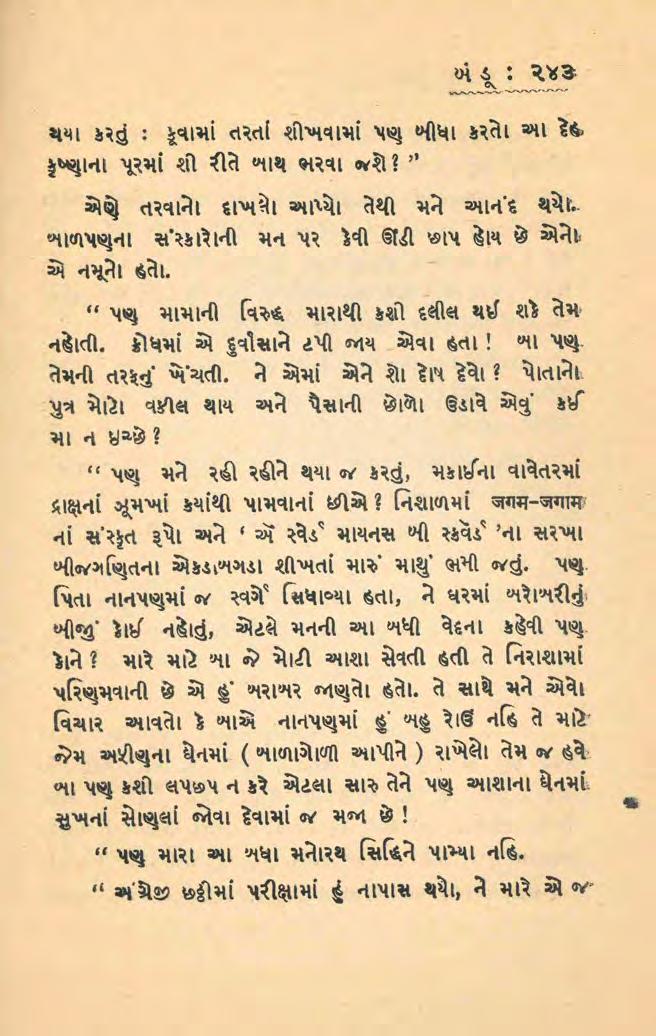 બંડૂ : ૨૪૩
થયા કરતું : કૂવામાં તરતાં શીખવામાં પણ બીધા કરતો આ દેહ
કૃષ્ણાના પૂરમાં શી રીતે બાથ ભરવા જશે? ”
એણે તરવાનો દાખલો આપ્યો તેથી મને આનંદ થયો.
બાળપણના સંસ્કારોની મન પર કેવી ઊંડી છાપ હોય છે એનો
એ નમૂનો હતો.
“ પણ મામાની વિરુદ્ધ મારાથી કશી દલીલ થઈ શકે તેમ
નહોતી. ક્રોધમાં એ દુર્વાસાને ટપી જાય એવા હતા! બા પણ
તેમની તરફનું ખેંચતી. ને એમાં એને શો દોષ દેવો? પોતાનો
પુત્ર મોટો વકીલ થાય અને પૈસાની છોળો ઉડાવે એવું કઈ
મા ન ઇચ્છે?
“ પણ મને રહી રહીને થયા જ કરતું, મકાઈના વાવેતરમાં
દ્રાક્ષનાં ઝૂમખાં કયાંથી પામવાનાં છીએ? નિશાળમાં जगम-जगाम
નાં સંસ્કૃત રૂપો અને ‘ ઍ સ્ક્વેર્ડ માયનસ બી સ્ક્વૅર્ડ ’ના સરખા
બીજગણિતના એકડાબગડા શીખતાં મારું માથું ભમી જતું. પણ
પિતા નાનપણમાં જ સ્વર્ગે સિધાવ્યા હતા, ને ઘરમાં બરોબરીનું
બીજું કોઈ નહોતું, એટલે મનની આ બધી વેદના કહેવી પણ
કોને? મારે માટે બા જે મોટી આશા સેવતી હતી તે નિરાશામાં
પરિણમવાની છે એ હું બરાબર જાણતો હતો. તે સાથે મને એવો
વિચાર આવતો કે બાએ નાનપણમાં હું બહુ રોઉં નહિ તે માટે
જેમ અફીણના ઘેનમાં ( બાળાગોળી આપીને ) રાખેલો તેમ જ હવે
બા પણ કશી લપછપ ન કરે એટલા સારુ તેને પણ આશાના ઘેનમાં
સુખનાં સોણલાં જોવા દેવામાં જ મજા છે!
“ પણ મારા આ બધા મનોરથ સિદ્ધિને પામ્યા નહિ.
“ અંગ્રેજી છઠ્ઠીમાં પરીક્ષામાં હું નાપાસ થયો, ને મારે એ જ